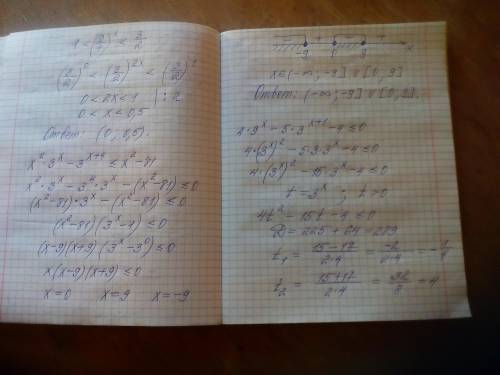 1 < (3/2)^x < 3/2
(3/2)^0 < (3/2)^{2x} < (3/2)^1
0 < 2x < 1 | : 2
0 < x < 0,5
Ответ: (0; 0,5).
x^2 · 3^x - 3^{x+4} ≤ x^2 - 81
x^2 · 3^x - 3^4 · 3^x - (x^2 - 81) ≤ 0
(x^2 - 81) · 3^x - (x^2 - 81) ≤ 0
(x^2 - 81)(3^x - 1) ≤ 0
(x-9)(x+9)(3^x - 3^0) ≤ 0
x(x-9)(x+9) ≤ 0
x = 0 x = 9 x = -9
- + - + -9 0 9 x
x ∈ (-∞; -9] ∪ [0; 9]
Ответ: (-∞; -9] ∪ [0; 9].
4 · 9^x - 5 · 3^{x+1} - 4 ≤ 0
4 · (3^x)^2 - 5 · 3 · 3^x - 4 ≤ 0
4 · (3^x)^2 - 15 · 3^x - 4 ≤ 0
t = 3^x ; t > 0
4t^2 - 15t - 4 ≤ 0
D = 225 + 64 = 289
t_1 = (15 - 17)/(2·4) = -2/(2·4) = -1/4
t_2 = (15 + 17)/(2·4) = 32/8 = 4